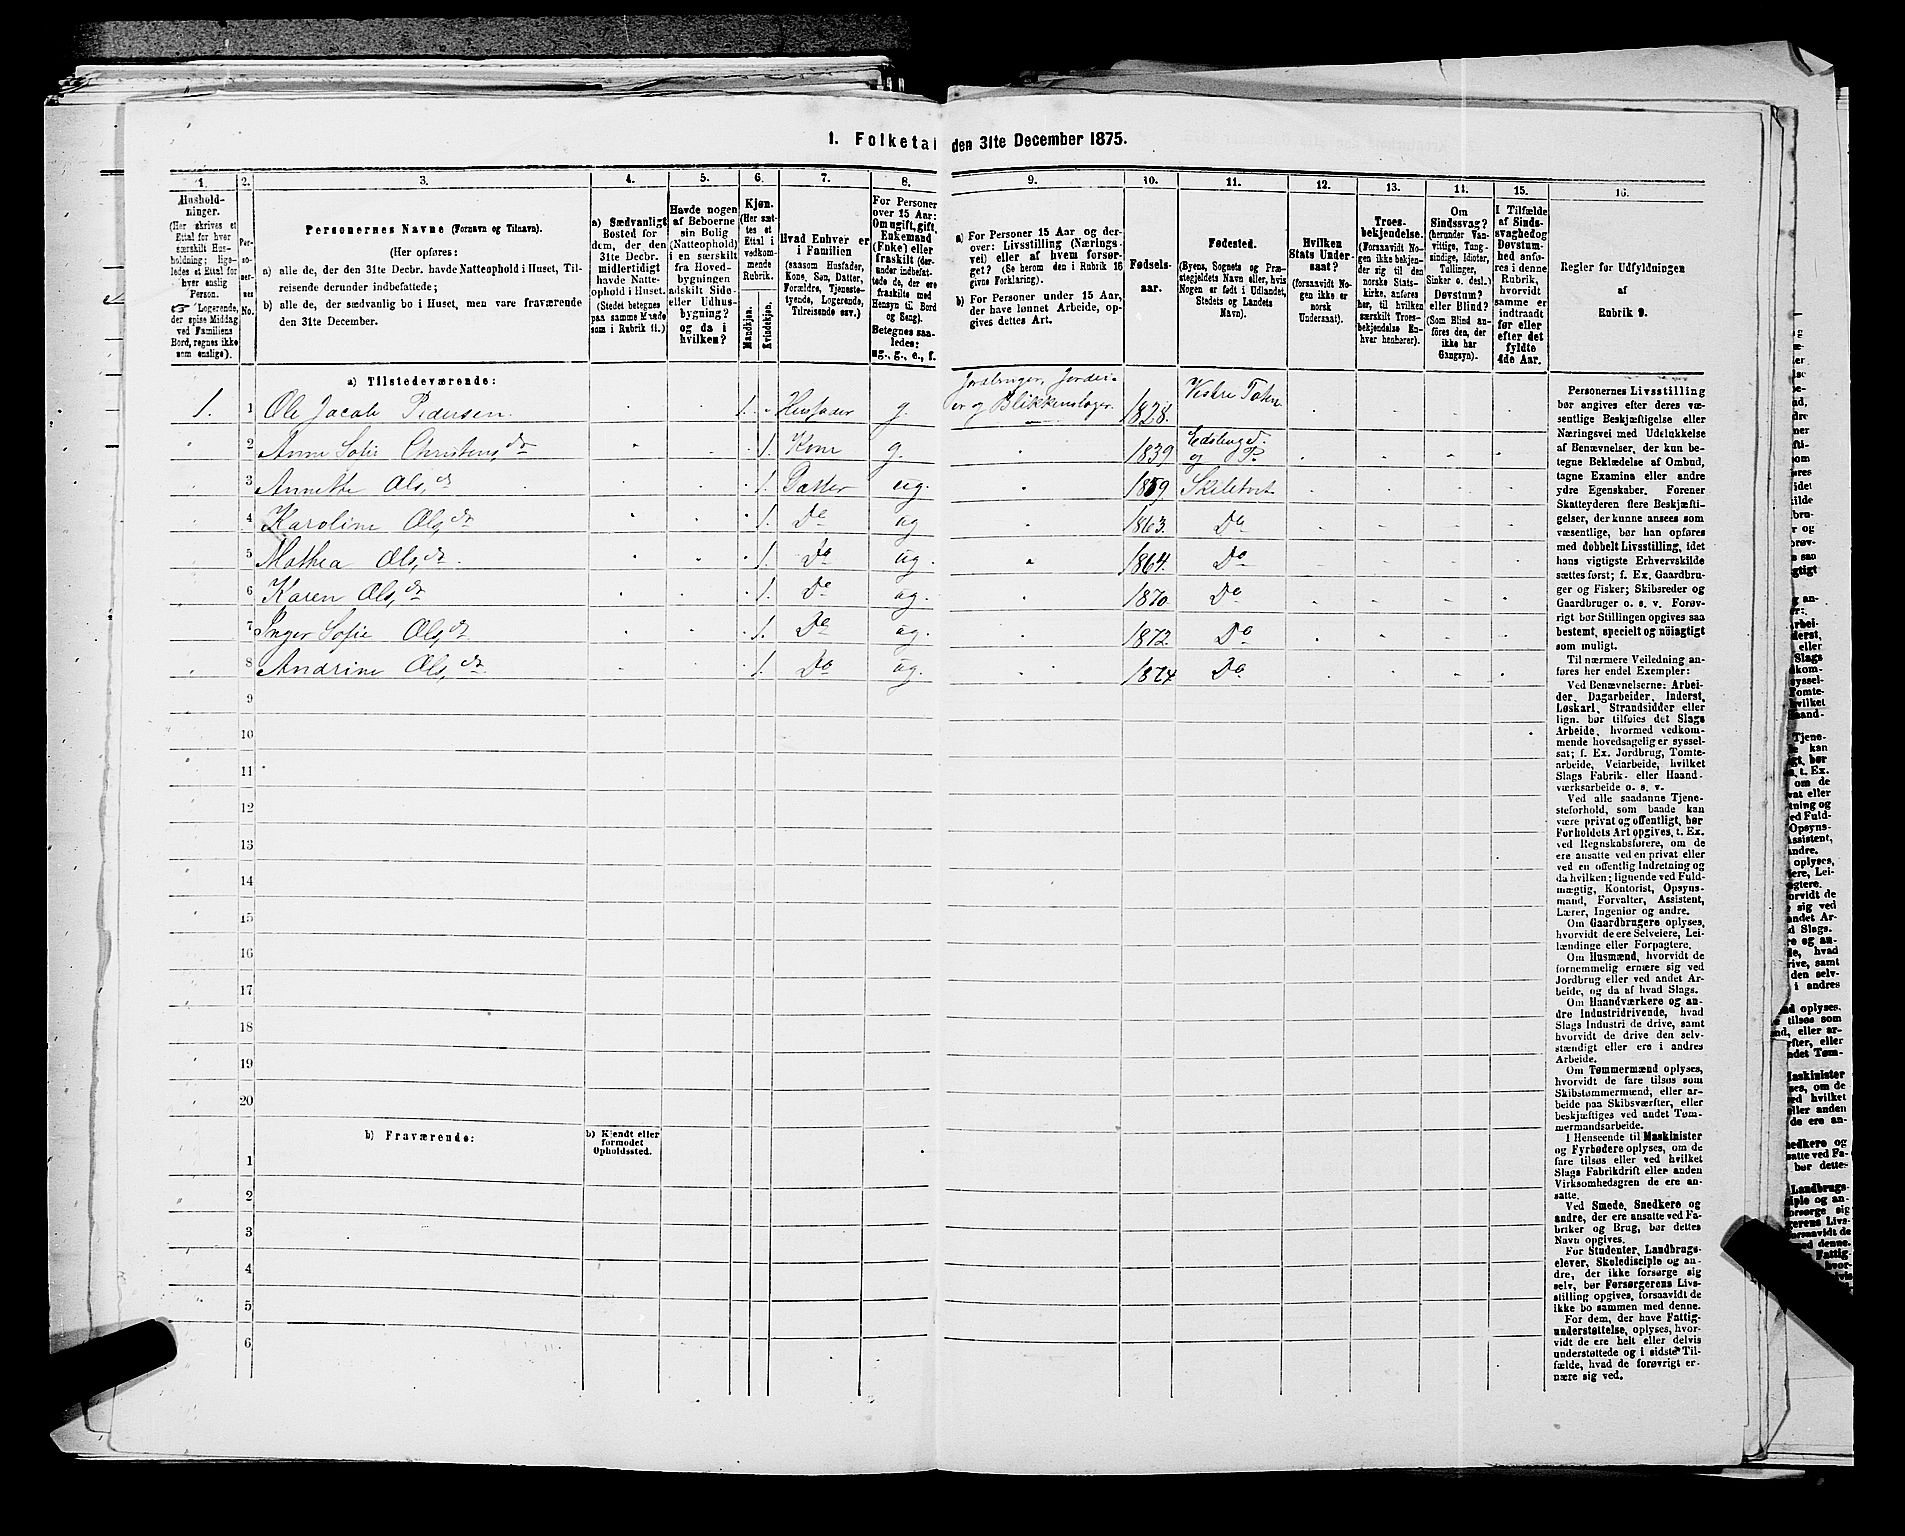 1. Folketal den 31te December 1875.
1. 2. 3. 4. 5. 6. 7. 8. 9. 10. 11. 12. 13. 14. 15. 16.
Husholdninger.
(Her skrives et
Ettal for hver
særskilt Husholdning;
ligeledes et Ettal for
hver enslig
Person.
Logerende,
der spise Middag
ved Familiens
Bord, regnes ikke
som enslige).
Personernes No.
Personernes Navne (Fornavn og Tilnavn).
(Her opføres:
a) alle de, der den 31te Decbr. havde Natteophold i Huset, Tilreisende
derunder indbefattede;
b) alle de, der sædvanlig bo i Huset, men vare fraværende
den 31te December.
a) Sædvanligt
Bosted for
dem, der den
31te Decbr.
midlertidigt
havde Natteophold
i Huset.
(Stedet betegnes
paa samme Maade
som i Rubrik 11.)
Havde nogen
af Beboerne
sin Bolig
(Natteophold)
i en særskilt
fra Hovedbygningen
adskilt Side-
eller Udhusbygning?
og da i
hvilken?
Kjøn.
(Her sættes
et
Ettal i
vedkommende
Rubrik.
Mandkjøn.
Kvindekjøn.
Hvad Enhver er
i Familien
(saasom Husfader,
Kone, Søn, Datter,
Forældre, Tjenestetyende,
Logerende,
Tilreisende osv.)
For Personer
over 15 Aar:
Om ugift, gift,
Enkemand
(Enke) eller
fraskilt (derunder
indbefattede
de, der
ere fraskilte med
Hensyn til Bord
og Seng).
Betegnes saaledes:
ug., g., e., f.
a) For Personer 15 Aar og derover:
Livsstilling (Næringsvei)
eller af hvem forsørget?
(Se herom den i Rubrik 16
givne Forklaring).
b) For Personer under 15 Aar,
der have lønnet Arbeide, opgives
dettes Art.
Fødselsaar.
Fødested.
(Byens, Sognets og Præstegjeldets
Navn eller, hvis
Nogen er født i Udlandet,
Stedets og Landets
Navn).
Hvilken
Stats Undersaat?
(forsaavidt Nogen
ikke er
norsk
Undersaat).
Troesbekjendelse.
(Forsaavidt Nogen
ikke bekjender
sig til den
norske Statskirke,
anføres
her, til hvilken
særskilt Troesbekjendelse
Enhver
henhører).
Om
Sindssvag?
(herunder Vanvittige,
Tungsindige,
Idioter,
Tullinger,
Sinker o. desl.)
Døvstum?
eller Blind?
(Som Blind anføres
den, der
ikke har
Gangsyn).
I Tilfælde
af Sindssvaghed og
Døvstumhed
anføres
i denne
Rubrik,
hvorvidt
samme er
indtraadt
før eller
efter det
fyldte
4de Aar.
Regler før Udfyldningen
af
Rubrik 9.
a) Tilstedeværende:
1. 1 Ole Jacob Pedersen. 1. Husfader g. Jordbruger, Jordeier og Blikkenslager. 1828. Vestre Toten
2 Anne Sofie Christensdr 1. Kone g. 1839 Edsberg S. og P.
3 Annette Olsdr 1. Datter ug. 1859. Skibtvet
4 Karoline Olsdr 1. Do ug 1863. Do
5 Mathea Olsdr. 1. Do ug. 1864. Do
6 Karen Olsdr 1. Do ug. 1870. Do
7 Inger Sofie Olsdr 1. Do ug. 1872. Do
8 Andrine Olsdr. 1. Do ug. 1874 Do
9
10
11
12
13
14
15
16
17
18
19
20
b) Fraværende:
b) Kjendt eller
formodet
Opholdssted.
1
2
3
4
5
6
Personernes Livsstilling
bør angives efter deres væsentlige
Beskjæftigelse eller
Næringsvei med Udelukkelse
af Benævnelser, der kun betegne
Beklædelse af Ombud,
tagne Examina eller andre
ydre Egenskaber. Forener
Skatteyderen flere Beskjæftigelser,
der kunne ansees som
væsentlige, bør han opføres
med dobbelt Livsstilling, idet
hans vigtigste Erhvervskilde
sættes først; f. Ex. Gaardbruger
og Fisker; Skibsreder og
Gaardbruger o. s. v. Forøvrigt
bør Stillingen opgives saa
bestemt, specielt og nöiagtigt
som muligt.
Til nærmere Veiledning anføres
her endel Exempler:
Ved Benævnelserne: Arbeider,
Dagarbeider, Inderst,
Løskarl, Strandsidder eller
lign. bør tilføies det Slags
Arbeide, hvormed vedkommende
hovedsagelig er sysselsat;
f. Ex. Jordbrug, Tomtearbeide,
Veiarbeide, hvilket
Slags Fabrik- eller Haandværksarbeide
o. s. v.
Ved alle saadanne Tjenesteforhold,
som baade kan
være privat og offentligt, bør
Forholdets Art opgives, t. Ex.
ved Regnskabsførere, om de
ere ansatte ved en privat eller
ved en offentlig Indretning og
da hvilken; lignende ved Fuldmægtig,
Kontorist, Opsynsmand,
Forvalter, Assistent,
Lærer, Ingeniør og andre.
Om Gaardbrugere oplyses,
hvorvidt de ere Selveiere, Leilændinge
eller Forpagtere.
Om Husmænd, hvorvidt de
fornemmelig ernære sig ved
Jordbrug eller ved andet Arbeide,
og da af hvad Slags.
Om Haandværkere og andre
Industridrivende, hvad
Slags Industri de drive, samt
hvorvidt de drive den selvstændigt
eller ere i andres
Arbeide.
Om Tømmermænd oplyses,
hvorvidt de fare tilsøs som
Skibstømmermænd, eller arbeide
paa Skibsværfter, eller
beskjæftiges ved andet Tømmermandsarbeide.
I Henseende til Maskinister
og Fyrbødere oplyses, om de
fare tilsøs eller ved hvilket
Slags Fabrikdrift eller anden
Virksomhedsgren de ere ansatte.
Ved Smede, Snedkere og
andre, der ere ansatte ved Fabriker
og Brug, bør dettes
Navn opgives.
For Studenter, Landbrugselever,
Skoledisciple og andre,
der ikke forsørge sig
selv, bør Forsørgerens Livsstilling
opgives, forsaavidt de
ikke bo sammen med denne.
For dem, der have Fattigunderstøttelse,
oplyses, hvorvidt
de ere helt eller delvis
understøttede og i sidste Tilfælde,
hvad de forøvrigt ernære
sig ved.